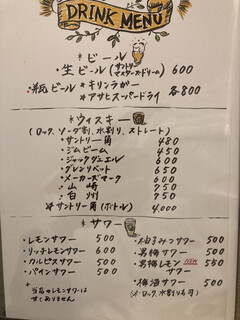 DRINK MENU
* ビール
・生ビール (サントリー マスターズ・ドリーム) 600
・瓶ビール * キリンラガー
* アサヒスーパードライ 各800
* ウィスキー
(ロック、ソーダ割、水割り、ストレート)
・サントリー角 480
・ジムビーム 450
・ジャックダニエル 650
・グレンリベット 650
・メーカーズマーク 600
・山崎 950
・白州 750
* サントリー角 (ボトル) 4,000
* サワー
・レモンサワー 500
・リッチレモンサワー 600
・カルピスサワー 500
・パインサワー 500
* 当店のレモンサワーは
甘くありません
・柚子みつサワー 500
・男梅サワー 500
・男梅レモンサワー NEW 550
・梅酒サワー 550
(* ロック、水割りも可)